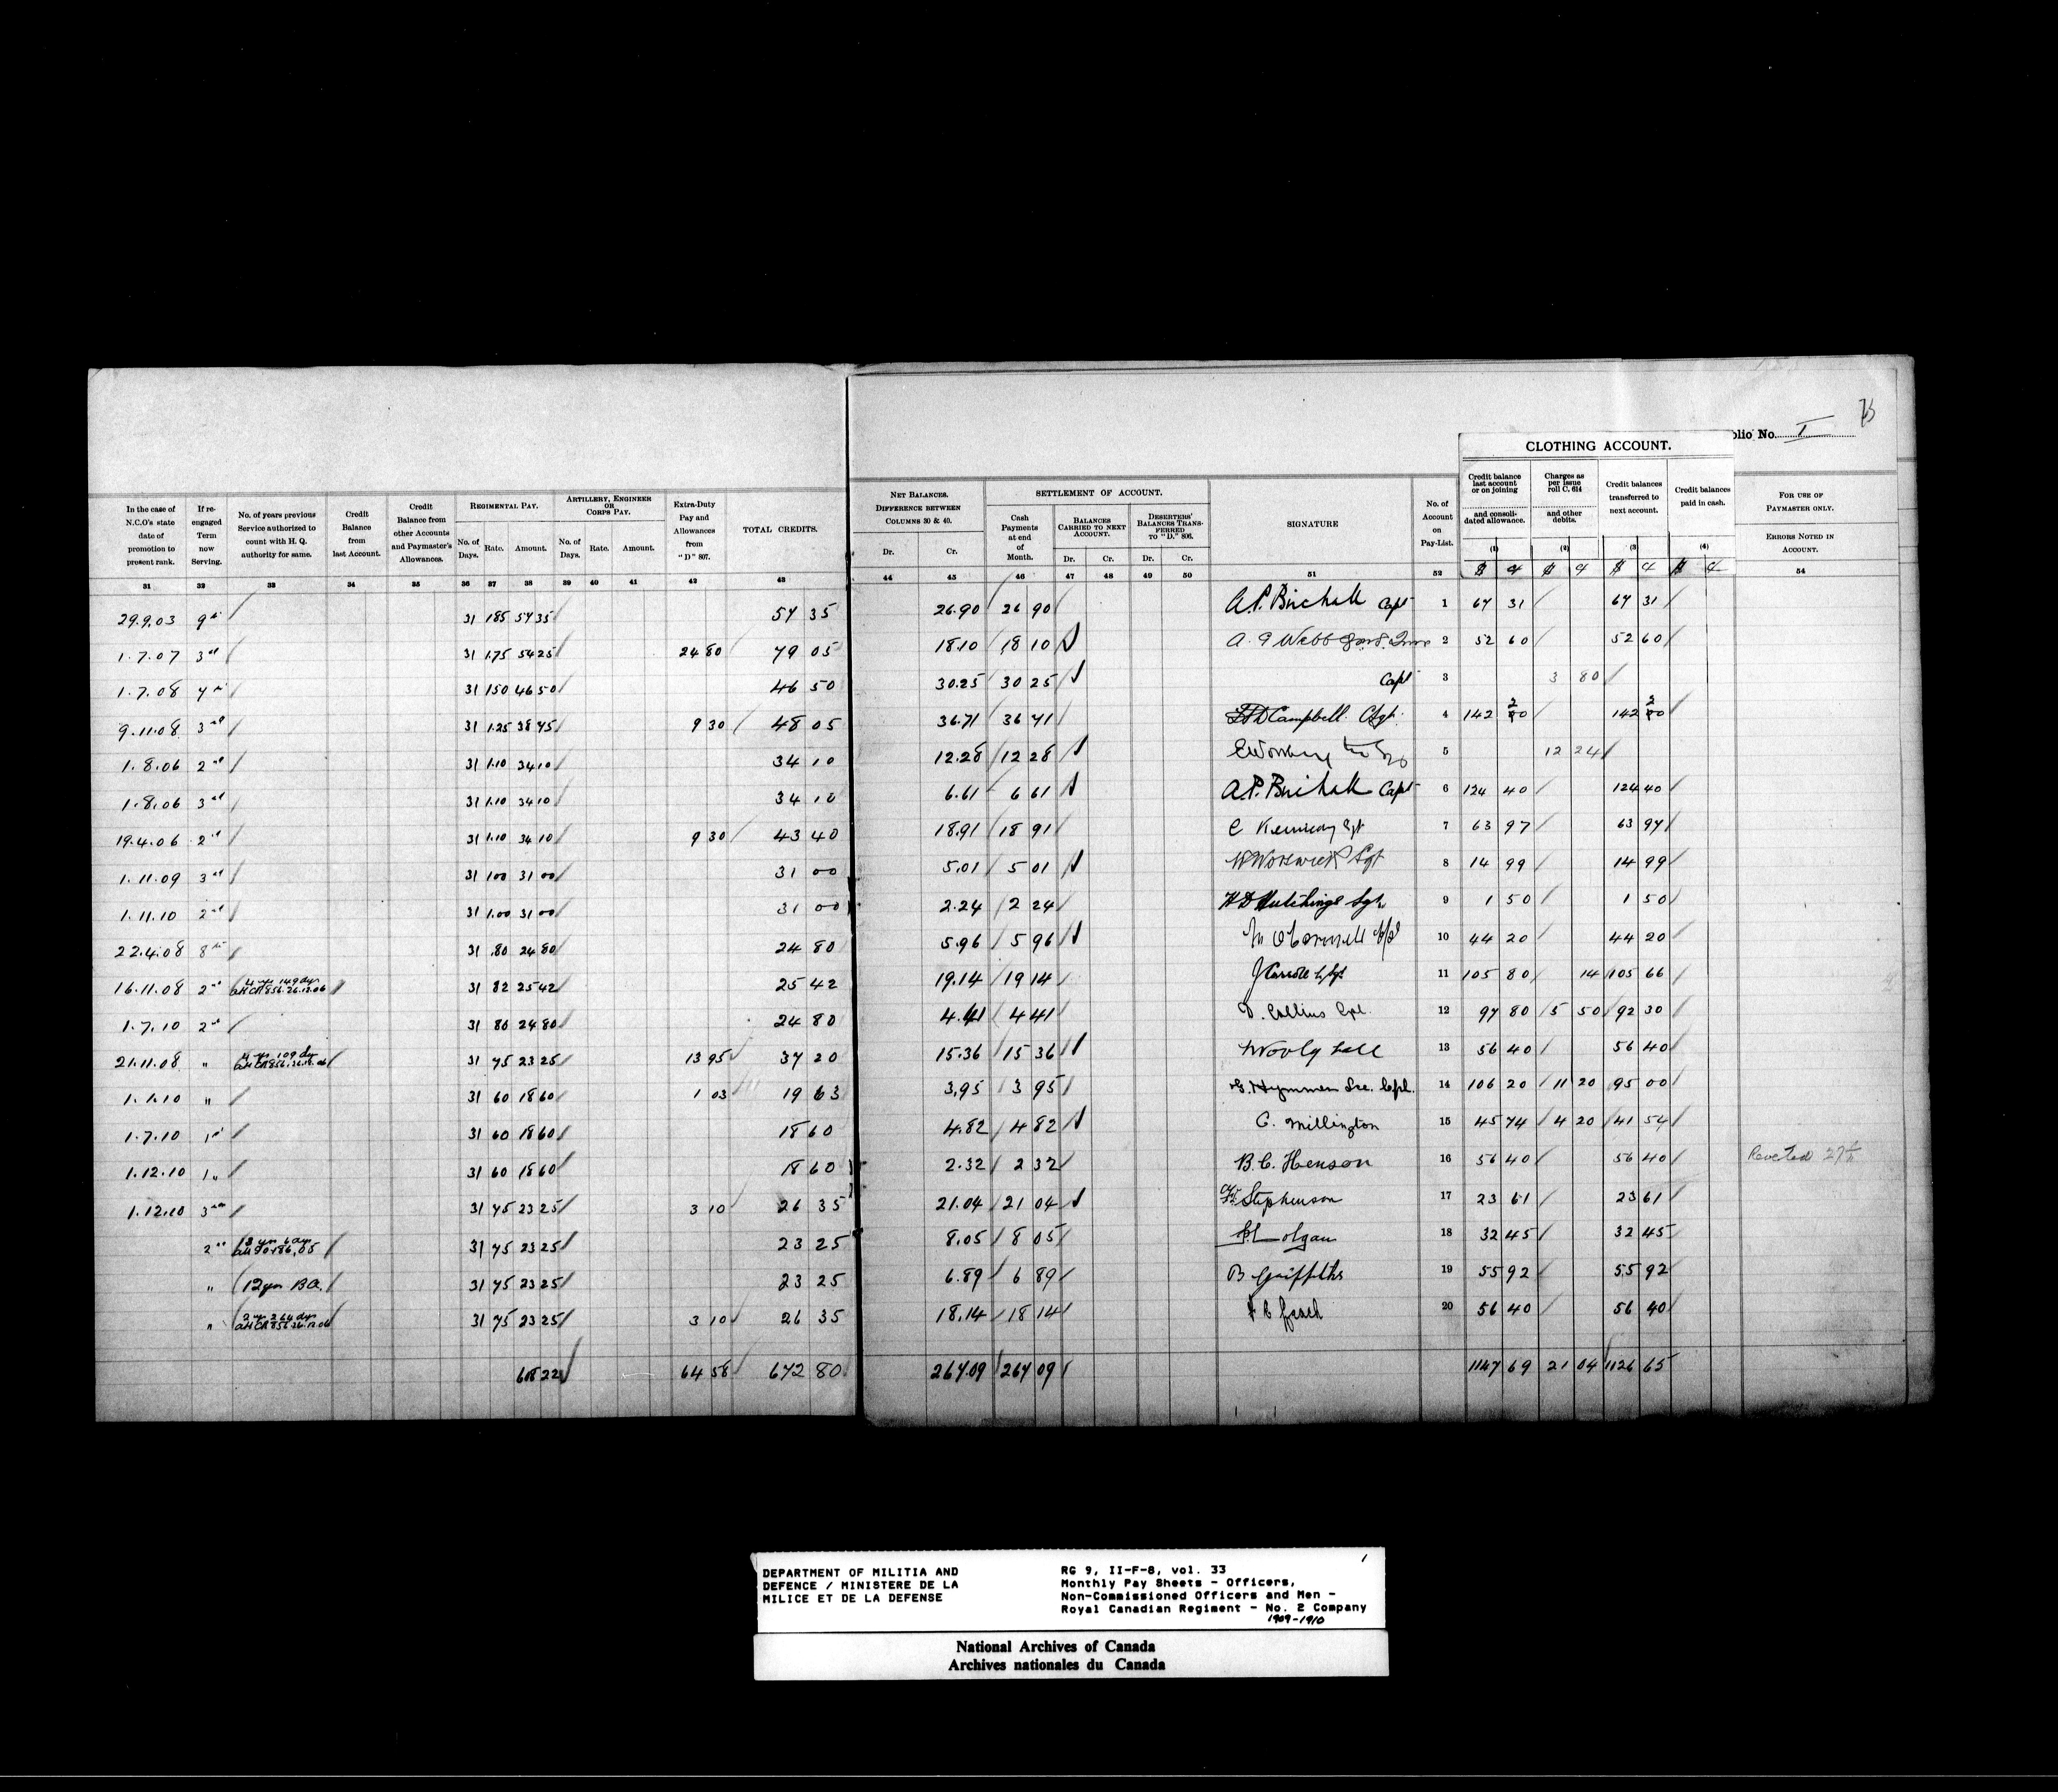 73
olio No. I
CLOTHING ACCOUNT.
In the case of N.C.O's state date of promotion to present rank.
If re-engaged Term now Serving.
No. of years previous Service authorized to count with H. Q. authority for same.
Credit Balance from last Account.
Credit Balance from other Accounts and Paymaster's Allowances.
REGIMENTAL PAY.
No. of Days. Rate. Amount.
ARTILLERY, ENGINEER OR CORPS PAY.
No. of Days. Rate. Amount.
Extra-Duty Pay and Allowances from "D" 807.
TOTAL CREDITS.
NET BALANCES. DIFFERENCE BETWEEN COLUMNS 30 & 40.
Dr. Cr.
SETTLEMENT OF ACCOUNT.
Cash Payments at end of Month.
BALANCES CARRIED TO NEXT ACCOUNT.
Dr. Cr.
DESERTERS' BALANCES TRANSFERRED TO "D." 806.
Dr. Cr.
SIGNATURE
No. of Account on Pay-List.
Credit balance last account or on joining and consolidated allowance.
Charges as per issue roll C. 614 and other debits.
Credit balances transferred to next account.
Credit balances paid in cash.
FOR USE OF PAYMASTER ONLY.
ERRORS NOTED IN ACCOUNT.
(1) (2) (3) (4)
$ ¢ $ ¢ $ ¢ $ ¢
31 32 33 34 35 36 37 38 39 40 41 42 43 44 45 46 47 48 49 50 51 52 54
29.9.03 9th 31 1.85 57 35 57 35 26.90 26 90 A.P. Birchall Capt 1 67 31 67 31
1.7.07 3rd 31 1.75 54 25 24 80 79 05 18.10 18 10 A. G Webb 2 52 60 52 60
1.7.08 4th 31 1.50 46 50 46 50 30.25 30 25 Capt 3 3 80
9.11.08 3rd 31 1.25 38 75 9 30 48 05 36.71 36 71 Campbell 4 142 20 142 20
1.8.06 2nd 31 1.10 34 10 34 10 12.28 12 28 5 12 24
1.8.06 3rd 31 1.10 34 10 34 10 6.61 6 61 A.P. Birchall Capt 6 124 40 124 40
19.4.06 2nd 31 1.10 34 10 9 30 43 40 18.91 18 91 C Kennedy Sgt 7 63 97 63 97
1.11.09 3rd 31 1.00 31 00 31 00 5.01 5 01 Sgt 8 14 99 14 99
1.11.10 2nd 31 1.00 31 00 31 00 2.24 2 24 H D Hutchings Sgt 9 1 50 1 50
22.4.08 8th 31 .80 24 80 24 80 5.96 5 96 10 44 20 44 20
16.11.08 2nd 4 yrs 149 dys 31 82 25 42 25 42 19.14 19 14 J Carroll 11 105 80 14 105 66
1.7.10 2nd 31 80 24 80 24 80 4.41 4 41 D. Collins Cpl. 12 97 80 5 50 92 30
21.11.08 " 4 yrs 109 dys 31 75 23 25 13 95 37 20 15.36 15 36 13 56 40 56 40
1.1.10 " 31 60 18 60 1 03 19 63 3,95 3 95 G. Hymmen Lce. Cpl. 14 106 20 11 20 95 00
1.7.10 1st 31 60 18 60 18 60 4.82 4 82 C. Millington 15 45 74 4 20 41 54
1.12.10 1" 31 60 18 60 18 60 2.32 2 32 B. C. Henson 16 56 40 56 40 Reverted
1.12.10 3rd 31 75 23 25 3 10 26 35 21.04 21 04 Stephenson 17 23 61 23 61
2nd 31 75 23 25 23 25 8.05 8 05 Colgan 18 32 45 32 45
" (12 yrs B.A.) 31 75 23 25 23 25 6.89 6 89 B Griffiths 19 55 92 55 92
" 2 yrs 264 dys 31 75 23 25 3 10 26 35 18.14 18 14 20 56 40 56 40
608 22 64 58 672 80 267.09 267 09 1147 69 21 04 1126 65
DEPARTMENT OF MILITIA AND
DEFENCE / MINISTERE DE LA
MILICE ET DE LA DEFENSE
RG 9, II-F-8, vol. 33
Monthly Pay Sheets - Officers,
Non-Commissioned Officers and Men -
Royal Canadian Regiment - No. 2 Company
1909-1910
National Archives of Canada
Archives nationales du Canada